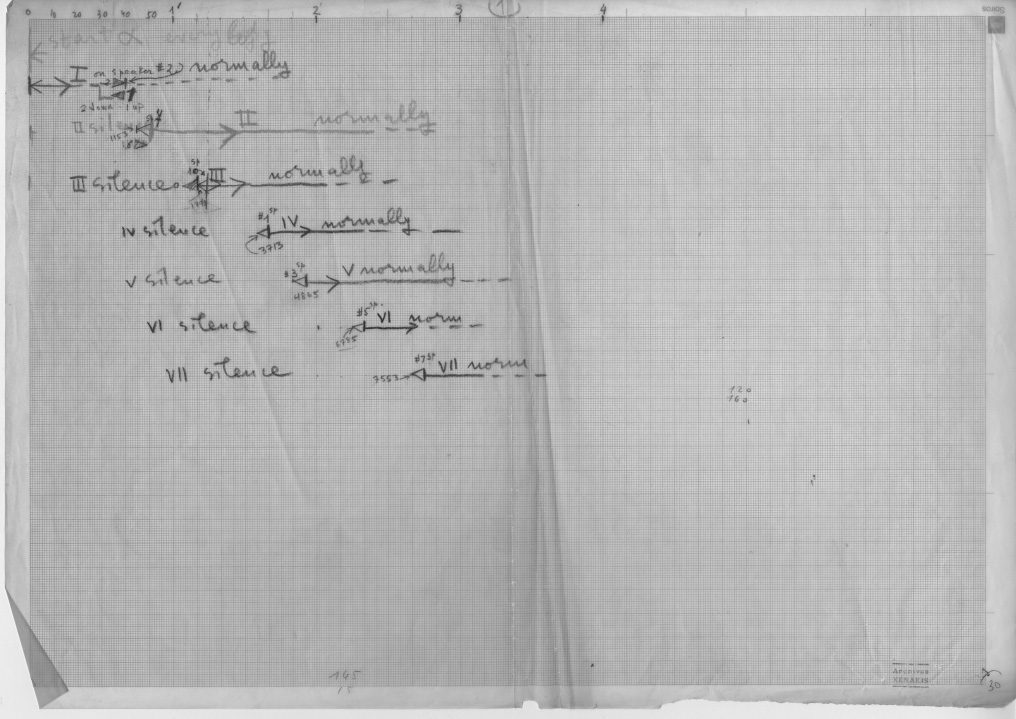 0 10 20 30 40 50 1' 2 3 11 4
start
I on speaker #2 normally
2 down 1 up
II silence II normally
1153
III silence III normally
IV silence #1 sp IV normally
3713
V silence #3 sp V normally
4865
VI silence #5 sp. VI norm
VII silence #7 sp VII norm
120
160
145
15
Archives
XENAKIS
30